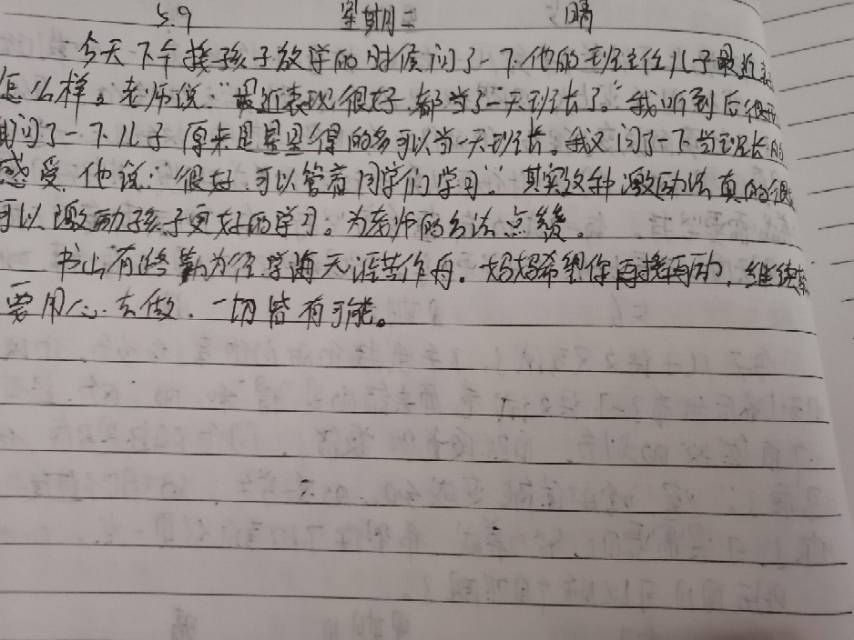 5.9 星期二 晴
今天下午接孩子放学的时候问了一下他的班主任儿子最近表
怎么样。老师说:"最近表现很好,都当了一天班长了。"我听到后很
期问了一下儿子原来是星星得的多可以当一天班长。我又问了一下当班长的
感受,他说:"很好,可以管着同学们学习。"其实这种激励法真的很
可以激励孩子更好的学习。为老师的方法点赞。
书山有路勤为径学海无涯苦作舟。妈妈希望你再接再励,继续
要用心去做,一切皆有可能。